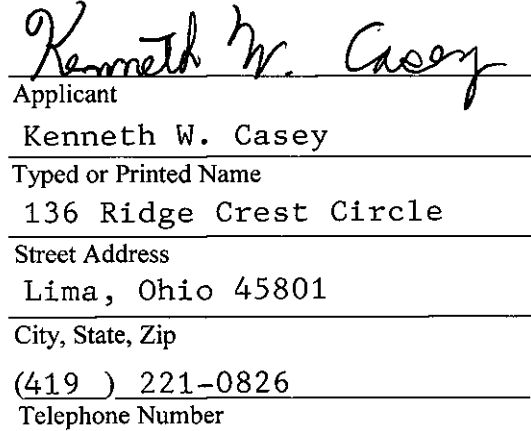 Kenneth W. Casey
Applicant
Kenneth W. Casey
Typed or Printed Name
136 Ridge Crest Circle
Street Address
Lima, Ohio 45801
City, State, Zip
(419 ) 221-0826
Telephone Number